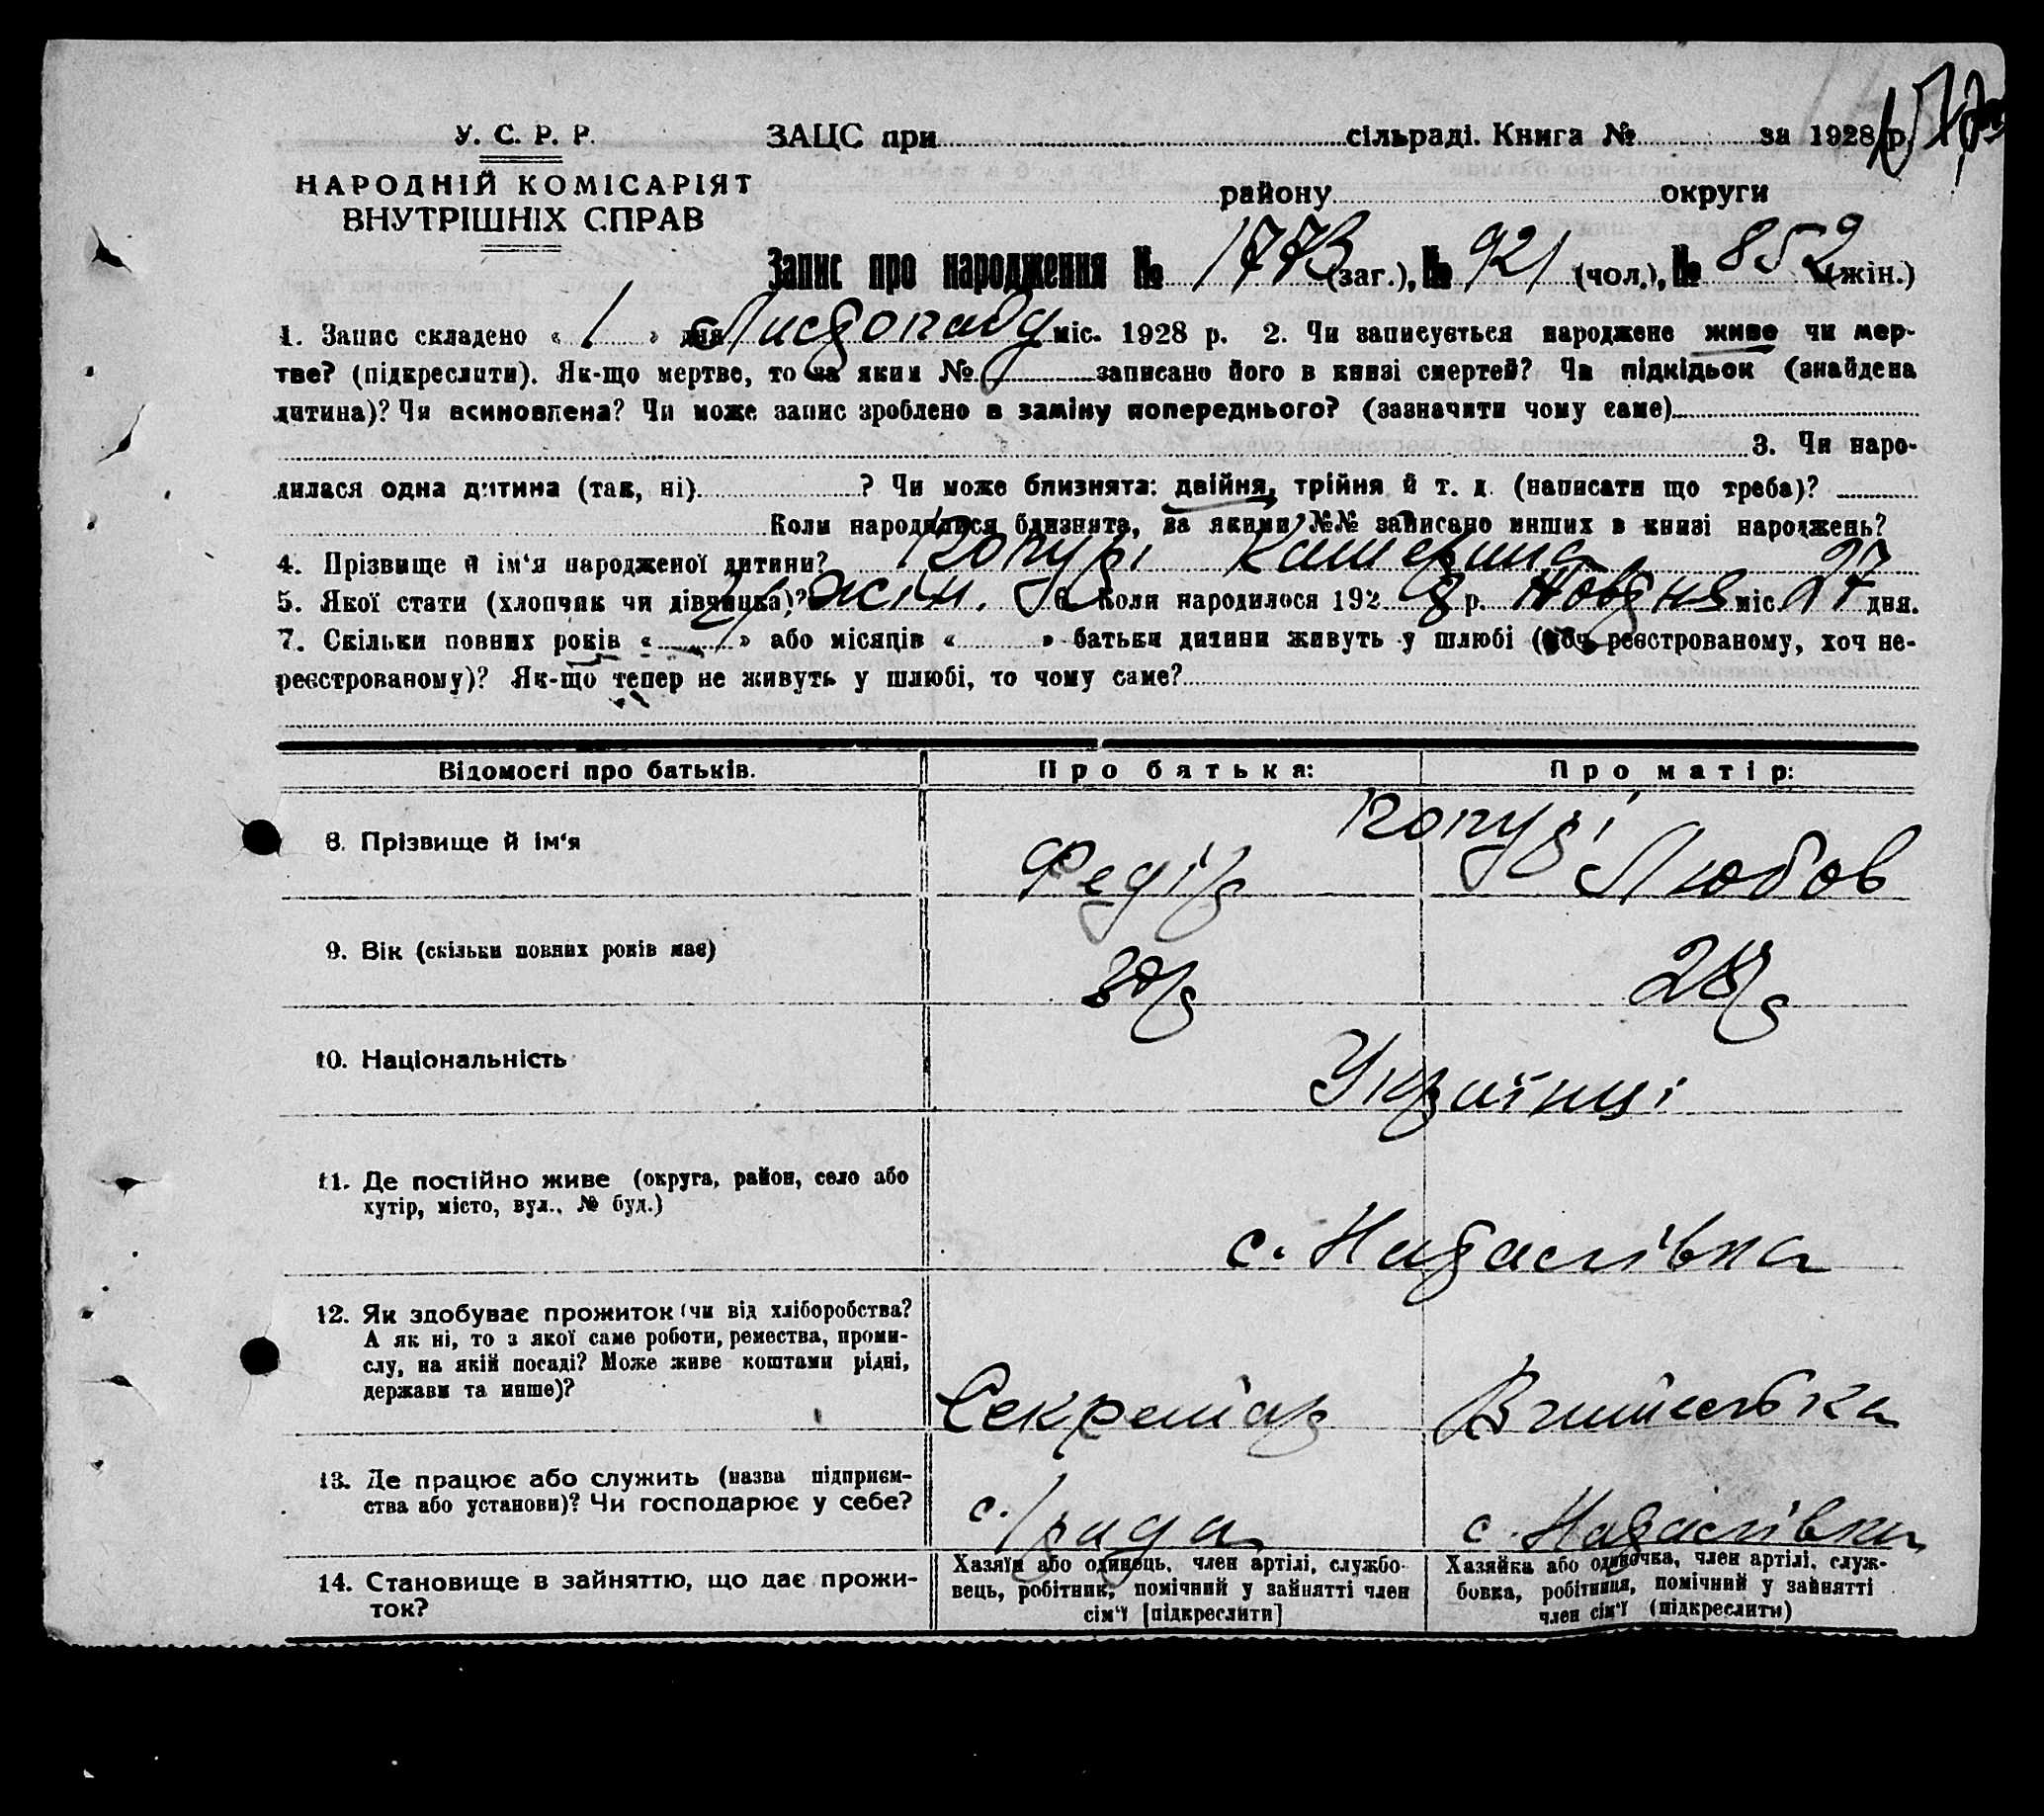 У. С. Р. Р.
НАРОДНІЙ КОМІСАРІЯТ
ВНУТРІШНІХ СПРАВ
ЗАЦС при сільраді. Книга № за 1928 р.
району округи
Запис про народження № 1773 (заг.), № 921 (чол.), № 852 (жін.)
1. Запис складено « 1 » дня Листопаду міс. 1928 р. 2. Чи записується народжене живе чи мер-
тве? (підкреслити). Як-що мертве, то за яким № записано його в книзі смертей? Чи підкідьок (знайдена
дитина)? Чи всиновлена? Чи може запис зроблено в заміну попереднього? (зазначити чому саме)
3. Чи наро-
дилася одна дитина (так, ні) ? Чи може близнята: двійня, трійня й т. д. (написати що треба)?
Коли народилися близнята, за якими №№ записано инших в книзі народжень?
4. Прізвище й ім'я народженої дитини? Катерина
5. Якої стати (хлопчик чи дівчинка)? жін. 6. Коли народилося 192 8 р. Жовтня міс. 27 дня.
7. Скільки повних років « » або місяців « » батьки дитини живуть у шлюбі (хоч реєстрованому, хоч не-
реєстрованому)? Як-що тепер не живуть у шлюбі, то чому саме?
Відомості про батьків. Про батька: Про матір:
8. Прізвище й ім'я Федір Любов
9. Вік (скільки повних років має) 30 р 28 р
10. Національність Українці
11. Де постійно живе (округа, район, село або
хутір, місто, вул., № буд.)
с.
12. Як здобуває прожиток (чи від хліборобства?
А як ні, то з якої саме роботи, ремества, проми-
слу, на якій посаді? Може живе коштами рідні,
держави та инше)?
Секретар Вчителька
13. Де працює або служить (назва підприєм-
ства або установи)? Чи господарює у себе?
с/рада с.
14. Становище в зайняттю, що дає прожи-
ток?
Хазяїн або одинець, член артілі, службо-
вець, робітник, помічний у зайнятті член
сім'ї [підкреслити]
Хазяйка або одиночка, член артілі, служ-
бовка, робітниця, помічний у зайнятті
член сім'ї (підкреслити)